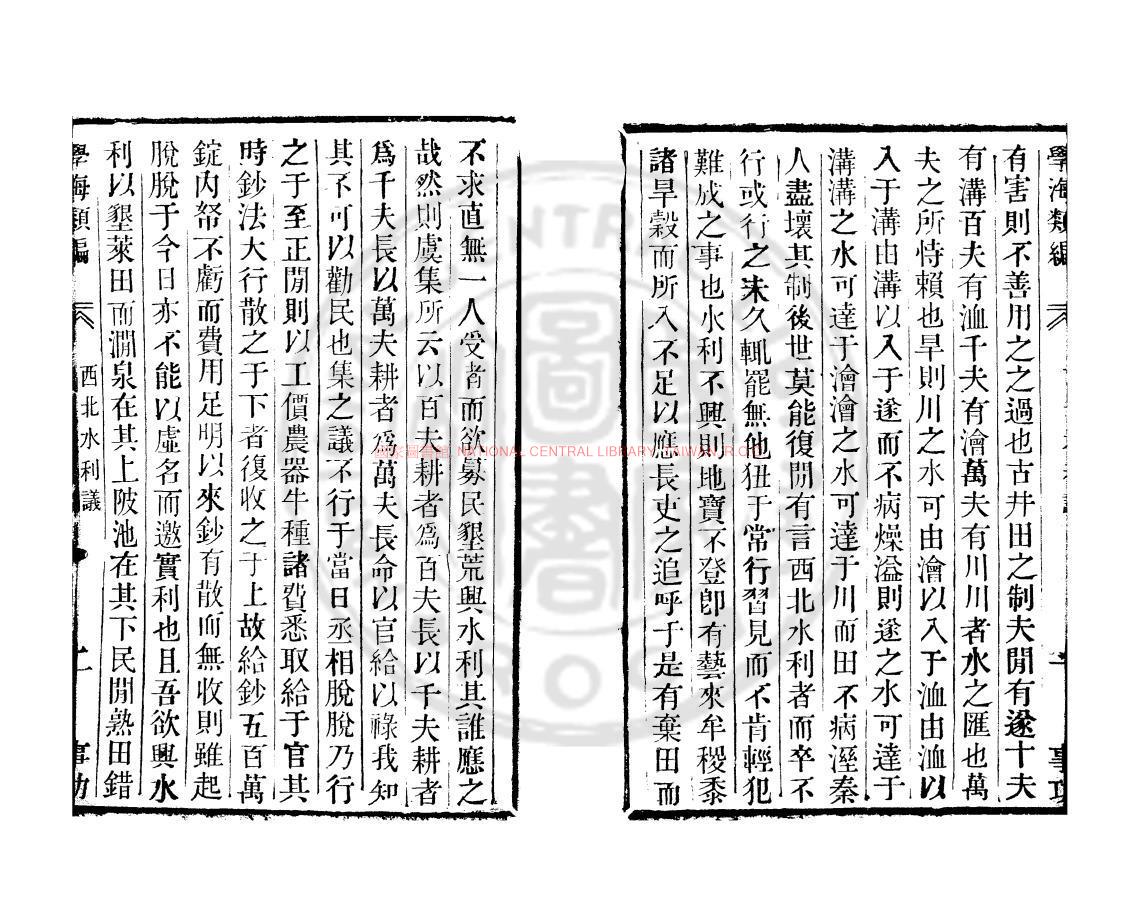 學海類編
事功
有害則不善用之之過也古井田之制夫閒有遂十夫
有溝百夫有洫千夫有澮萬夫有川川者水之匯也萬
夫之所恃賴也旱則川之水可由澮以入于洫由洫以
入于溝由溝以入于遂而不病燥溢則遂之水可達于
溝溝之水可達于澮澮之水可達于川而田不病溼秦
人盡壞其制後世莫能復閒有言西北水利者而卒不
行或行之未久輒罷無他狃于常行習見而不肯輕犯
難成之事也水利不興則地寶不登卽有藝來牟稷黍
諸旱穀而所入不足以應長吏之追呼于是有棄田而
不求直無一人受者而欲募民墾荒興水利其誰應之
哉然則虞集所云以百夫耕者為百夫長以千夫耕者
為千夫長以萬夫耕者為萬夫長命以官給以祿我知
其不可以勸民也集之議不行于當日丞相脫脫乃行
之于至正閒則以工價農器牛種諸費悉取給于官其
時鈔法大行散之于下者復收之于上故給鈔五百萬
錠內帑不虧而費用足明以來鈔有散而無收則雖起
脫脫于今日亦不能以虛名而邀實利也且吾欲興水
利以墾萊田而澗泉在其上陂池在其下民閒熟田錯
學海類編
西北水利議
二
事功
國家圖書館, NATIONAL CENTRAL LIBRARY, TAIWAN,R.O.C